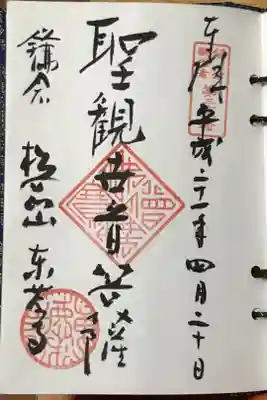 奉拝 平成二十一年四月二十日
聖観世音菩薩
鎌倉 松岡山 東慶寺